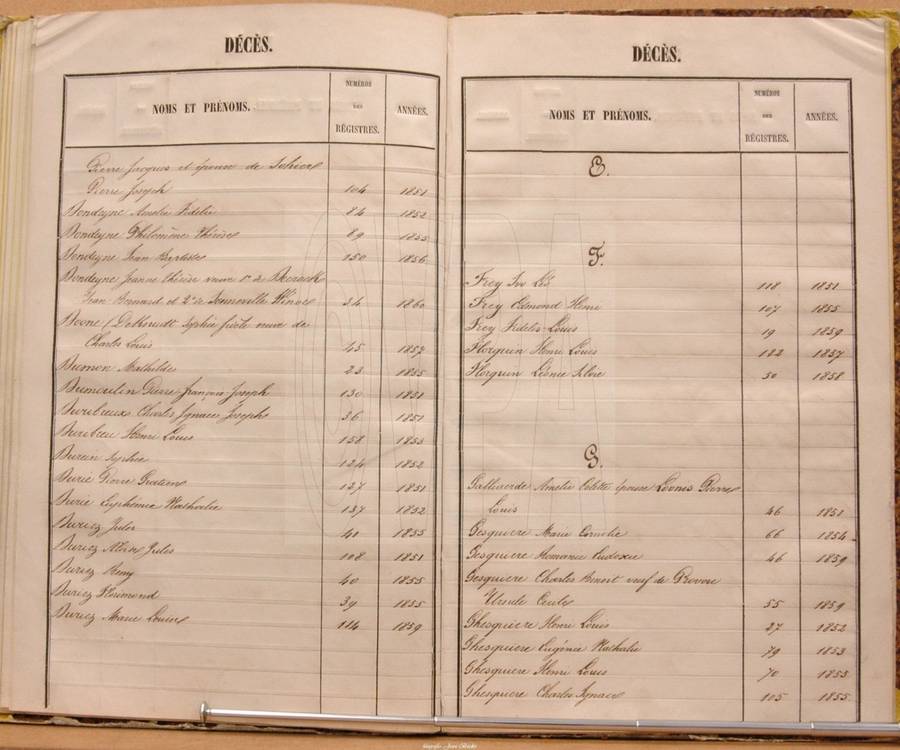 DÉCÈS.
NOMS ET PRÉNOMS.
NUMÉROS DES RÉGISTRES.
ANNÉES.
Pierre Jacques et épouse de
Pierre Joseph 104 1851
Bondeyne Amelie Fidélie 84 1852
Bondeyne Philomène Thérèse 89 1855
Bondeyne Jean Baptiste 150 1856
Bondeyne Jeanne Thérèse veuve 1° de
Jean Bernard et 2° de Sonneville 34 1860
Sophie veuve de
Charles Louis 45 1857
Dumon Mathilde 23 1855
Dumoulin Pierre françois Joseph 130 1851
Duribreux Charles Ignace Joseph 36 1851
Duribreu Henri Louis 158 1853
Sophie 124 1852
Durié Pierre 137 1851
Durie Euphémie Nathalie 137 1852
Duriez Jules 41 1855
Duriez Jules 108 1851
Duriez Remy 40 1855
Duriez Florimond 39 1855
Duriez Marie Louise 114 1859
DÉCÈS.
NOMS ET PRÉNOMS.
NUMÉROS DES RÉGISTRES.
ANNÉES.
E.
F.
Frey 118 1851
Frey Edmond Henri 107 1855
Frey Fidèle Louis 19 1859
Florquin Henri Louis 122 1857
Florquin Léonie 50 1858
G.
Amelie Colette épouse Pierre
Louis 46 1851
Gesquiere Marie Cornelie 66 1854
Gesquiere Romanie Eudoxie 46 1859
Gesquiere Charles Benoit veuf de
Ursule 55 1859
Ghesquiere Henri Louis 27 1852
Ghesquiere Eugénie Nathalie 79 1853
Ghesquiere Henri Louis 70 1853
Ghesquiere Charles Ignace 105 1855